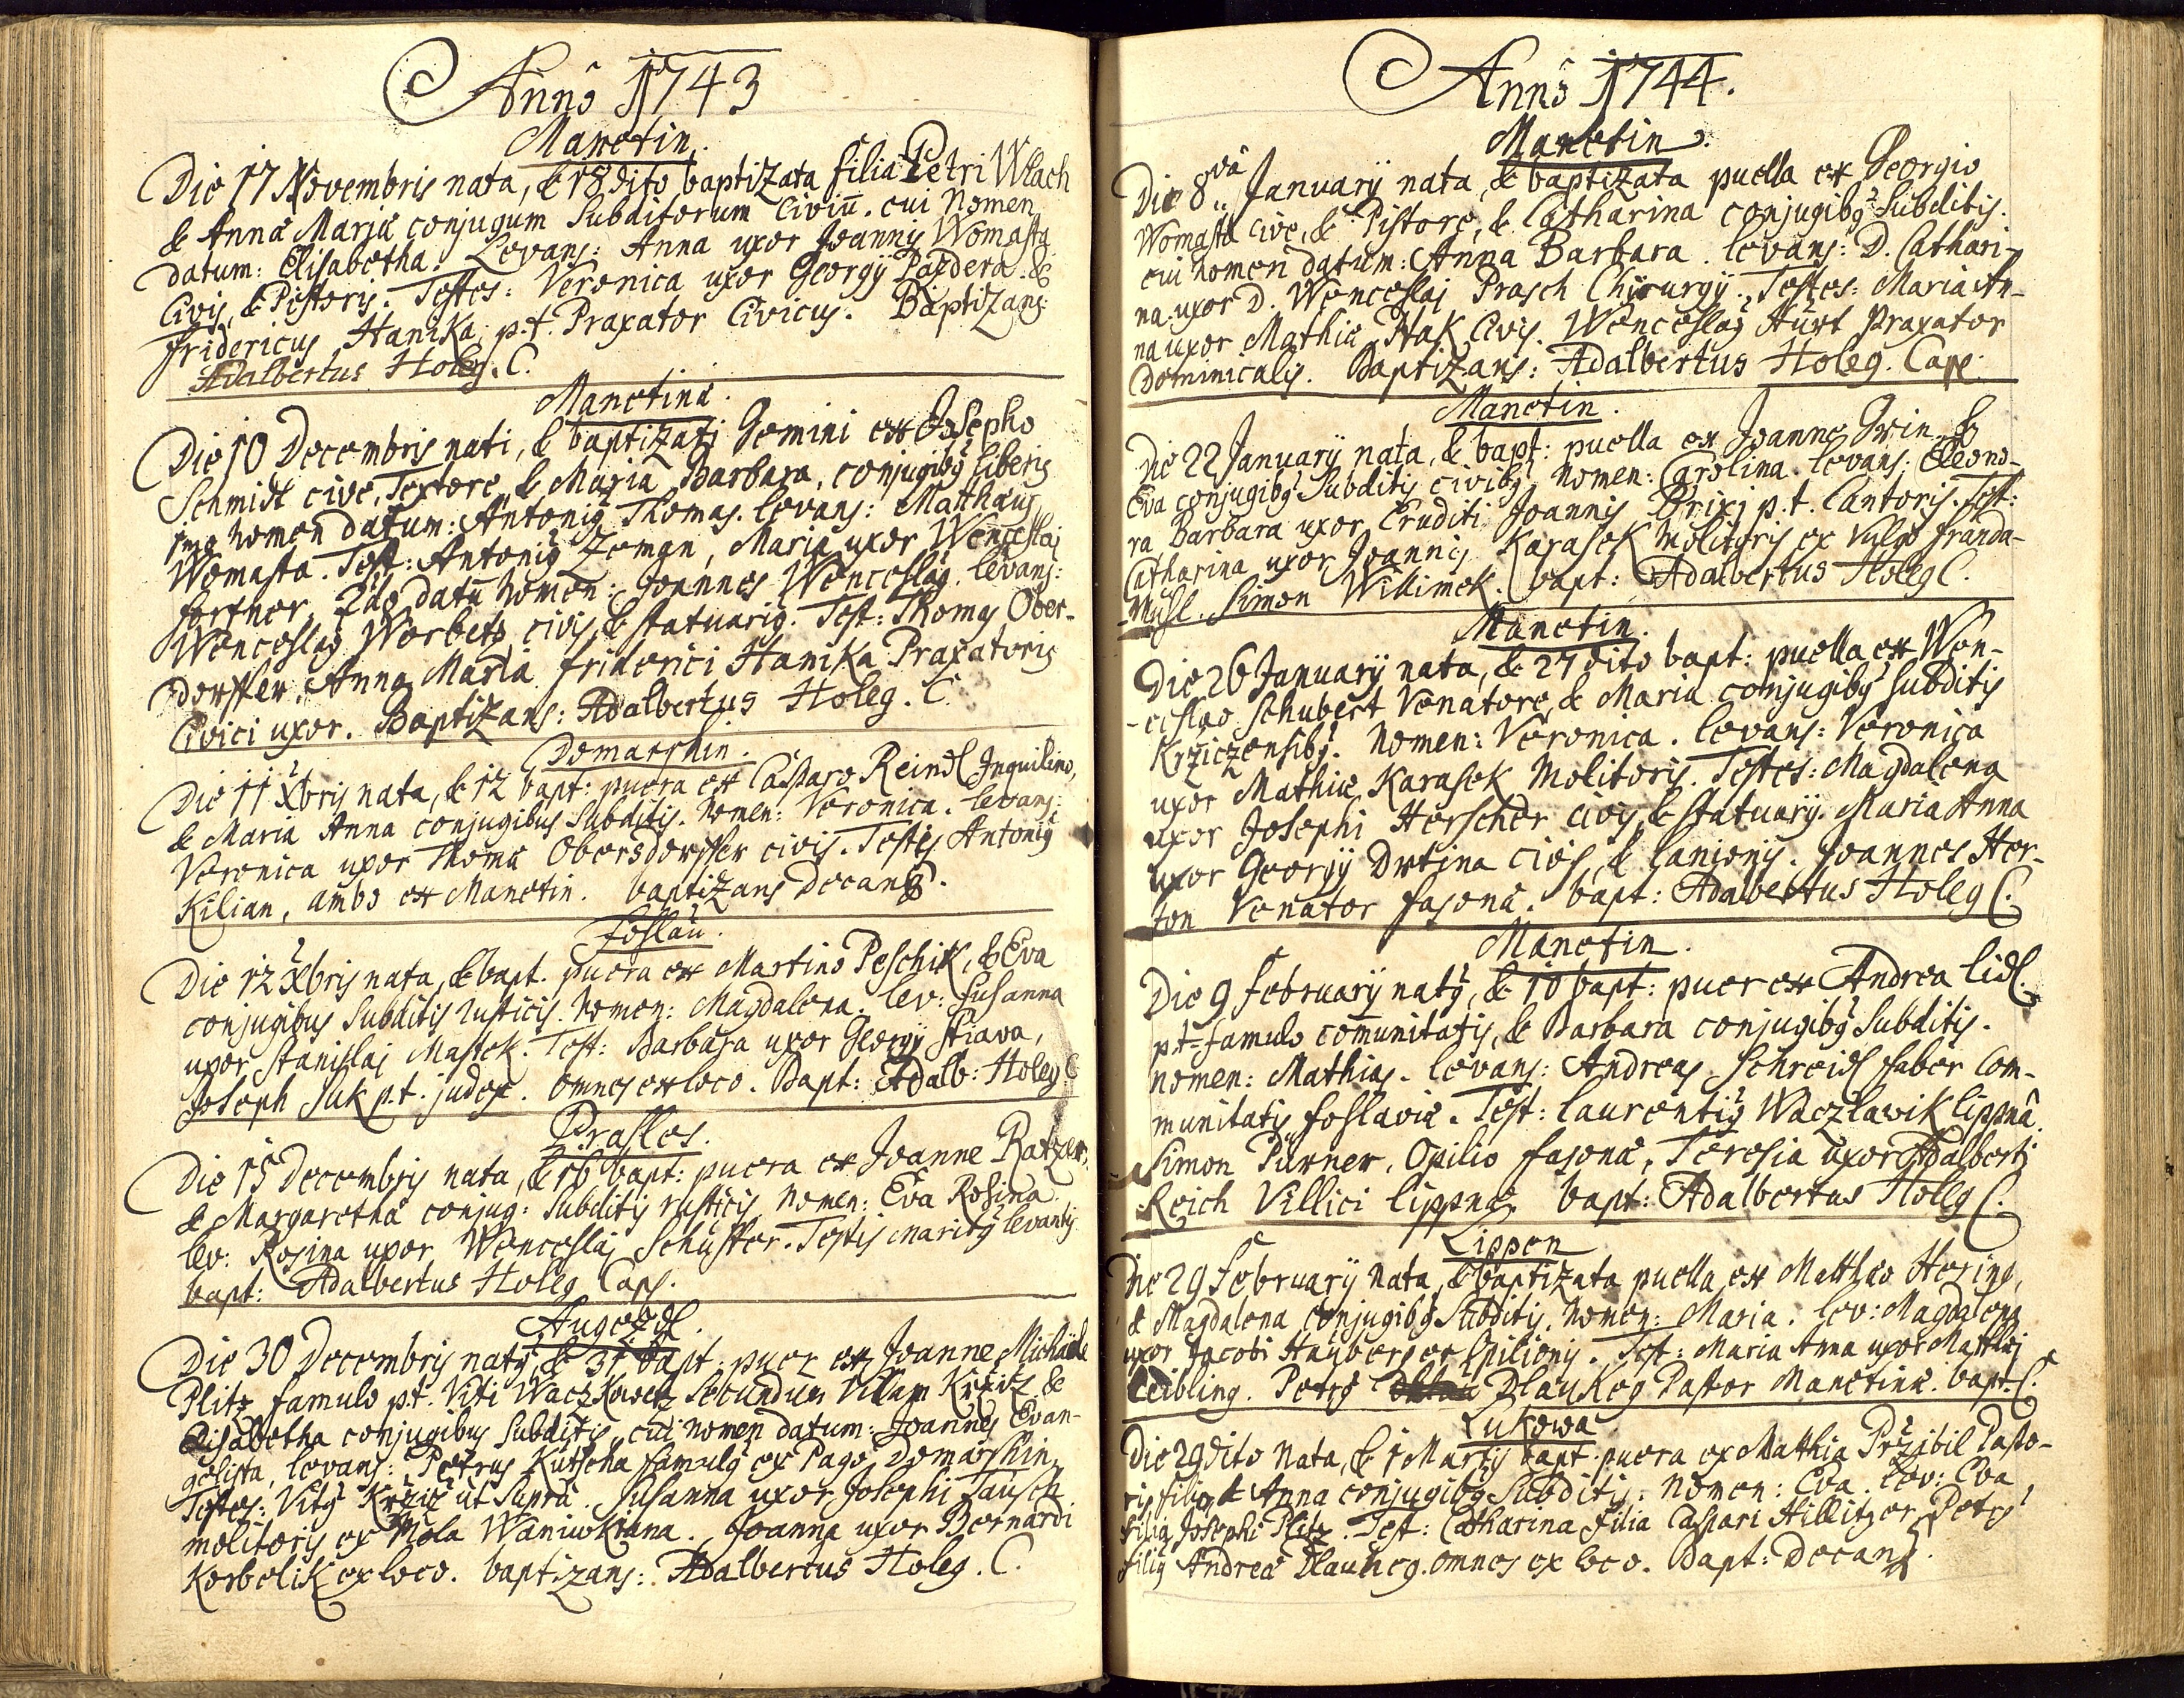 Anno 1743
Manetin.
Die 17 Novembris nata, & 18 dito baptizata filia Petri Wlach
& Anna Maria conjugum Subditorum Civiū. cui Nomen
datum: Elisabetha. Levans: Anna uxor Joannis Womasta
Civis, & Pistoris. Testes: Veronica uxor Georgij Pazdera &
fridericus Hanika p.t. Praxator Civicus. Baptizans
Adalbertus Holeg. C.
Manetina.
Die 10 Decembris nati, & baptizati Gemini ex Josepho
Schmidt cive, Textore & Maria Barbara, conjugibq liberis
1mo nomen datum: Antonig Thomas. levans: Matthaus
Womasta. Test: Antonig Zeman, Maria uxor Wenceslai
fortner, 2do datū Nomen: Joannes Wenceslaq. levans:
Wenceslaq Worbetz civis & statuariq. Test: Thomas Ober-
dorffer, Anna Maria friderici Hanika Praxatoris
Civici uxor. Baptizans: Adalbertus Holeg. C.
Domarshin.
Die 11 Xbris nata, & 12 bapt: puera ex Casparo Reindl Inquilino,
& Maria Anna conjugibus Subditis. Nomen: Veronica. levans:
Veronica uxor Thoma Obersdorffer civis. Testis Antonig
Kilian, ambo ex Manetin. baptizans Decang.
foslau.
Die 12 Xbris nata, & bapt. puera ex Martino Peschik, & Eva
conjugibus Subditis rusticis. Nomen: Magdalena. lev: Susanna
uxor Stanislai Mastek. Test: Barbara uxor Georgij Stiawa,
Joseph Suk p.t. judex. omnes ex loco. Bapt: Adalb: Holeg. C
Prasles.
Die 15 Decembris nata, & 16 bapt: puera ex Joanne Ratzer,
& Margaretha conjug: Subditis rusticis Nomen: Eva Rosina
lev: Rosina uxor Wenceslai Schuster. Testis maritq levantis
bapt: Adalbertus Holeg Cap.
Augezdl.
Die 30 Decembris natq, & 31 bapt: puer ex Joanne Michaële
Plitz famulo p.t. Viti Waczkowetz secundum Villam Krziz &
Elisabetha conjugibus Subditis, cui nomen datum: Joannes Evan-
gelista, levans: Petrus Kutscha famulq ex Pago Domarshin,
Testes: Vitq Krziz ut supra. Susanna uxor Josephi Tausch
molitoris ex Mola Waniwkiana. Joanna uxor Bernardi
Korbelik ex loco. baptizans: Adalbertus Holeg. C.
Anno 1744.
Manetin.
Die 8va Januarij nata, & baptizata puella ex Georgio
Womasta cive, & Pistore, & Catharina conjugibq Subditis.
cui nomen datum: Anna Barbara. levans: D. Cathari-
na uxor D. Wenceslai Prasch Chyrurgij. Testes: Maria An-
na uxor Mathiæ Ptak Civis. Wenceslaq Hurt Praxator
Dominicalis. Baptizans: Adalbertus Holeg. Cape.
Manetin.
Die 22 Januarij nata, & bapt: puella ex Joanne Grin, &
Eva conjugibq Subditis civibq, Nomen: Carolina. levans: Eleono-
ra Barbara uxor Eruditi Joannis Brixi p.t. Cantoris. Test:
Catharina uxor Joannis Karasek Molitoris ex Vulgo franda-
-Mühl. Simon Willimek. bapt: Adalbertus Holeg C.
Manetin.
Die 26 Januarij nata, & 27 dito bapt: puella ex Wen-
-ceslao Schubert Venatore, & Maria conjugibq Subditis
Krziczensibq. Nomen: Veronica. levans: Veronica
uxor Mathiæ Karasek Molitoris. Testes: Magdalena
uxor Josephi Herscher civis & statuarij. Maria Anna
uxor Georgij Drtina civis, & lanionis. Joannes Her-
ton Venator fasona. bapt: Adalbertus Holeg C.
Manetin.
Die 9 februarij natq, & 10 bapt: puer ex Andrea Lidl
p.t. famulo comunitatis, & Barbara conjugibq Subditis.
nomen: Mathias. levans: Andreas Schreidl faber Com-
munitatis foslaviæ. Test: laurentiq Waczlawik lippnâ.
Simon Purner, Opilio fasonâ, Teresia uxor Adalberti
Reich Villici lippnæ. bapt: Adalbertus Holeg C.
Lippen
Die 29 februarij nata, & baptizata puella ex Matthæo Hering,
& Magdalena conjugibq Subditis. Nomen: Maria. lev: Magdalena
uxor Jacobi Hayberger Opilionis. Test: Maria Anna uxor Matthæi
Leibling. Petrq Dlauheg Pastor Manetinæ. bapt. C.
Lukowa
Die 29 dito nata, & 1 Martij bapt: puera ex Matthia Przibil Pasto-
ris filio & Anna conjugibq Subditis. Nomen: Eva. lev: Eva
filia Josephi Plitz. Test: Catharina filia Caspari Hillitzer, Petrq
filiq Andrea Dlauheg. omnes ex loco. Bapt: Decang.